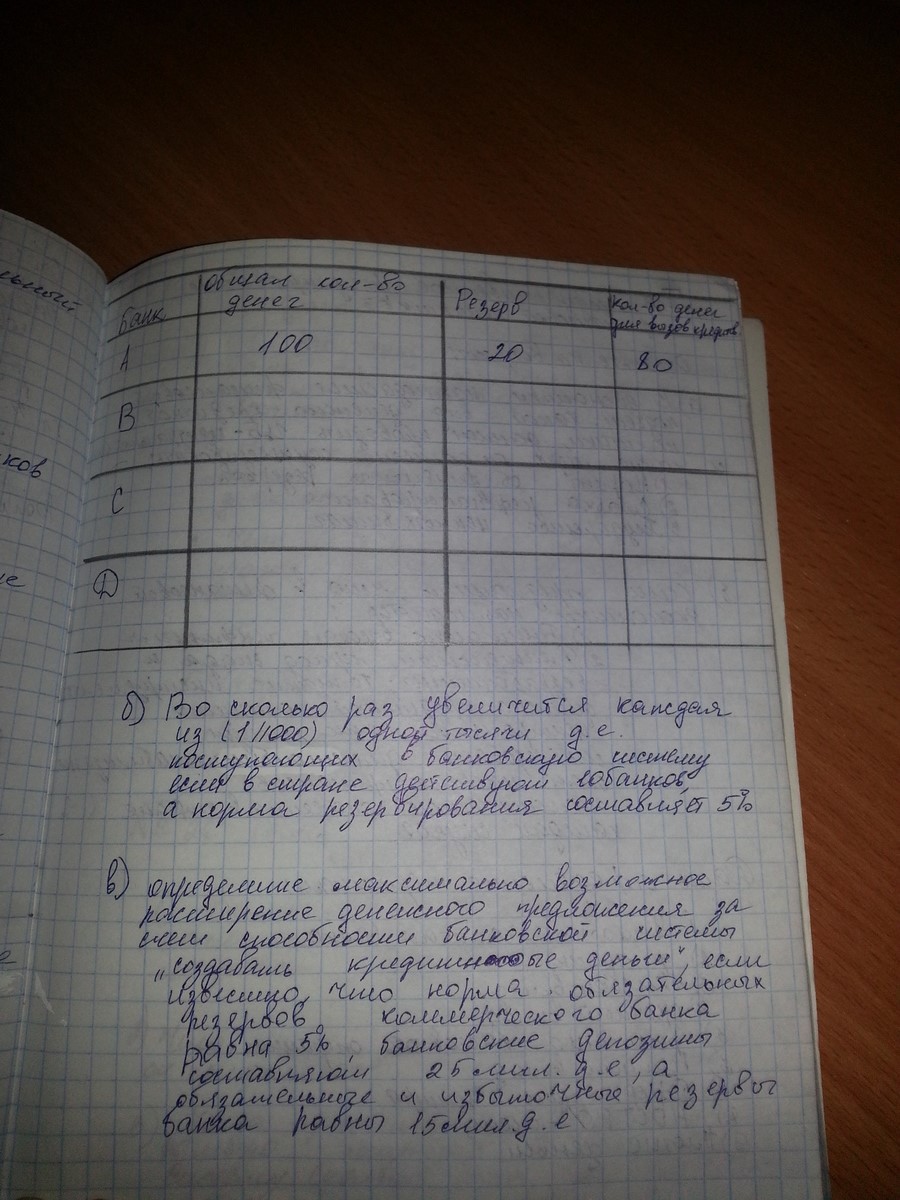 ьный
ков
е
Банк
общая кол-во
денег
Резерв
кол-во денег
для выдов кредитов
A 100 20 80
B
C
D
б) Во сколько раз увеличится каждая
из (1/1000) одной тысячи д.е.
поступающих в банковскую систему
если в стране действуют 10банков,
а норма резервирования составляет 5%
в) определите максимально возможное
расширение денежного предложения за
счет способности банковской системы
„создавать кредитные деньги", если
известно, что норма обязательных
резервов коммерческого банка
равна 5%, банковские депозиты
составляют 25 млн. д.е, а
обязательные и избыточные резервы
банка равны 15млн.д.е